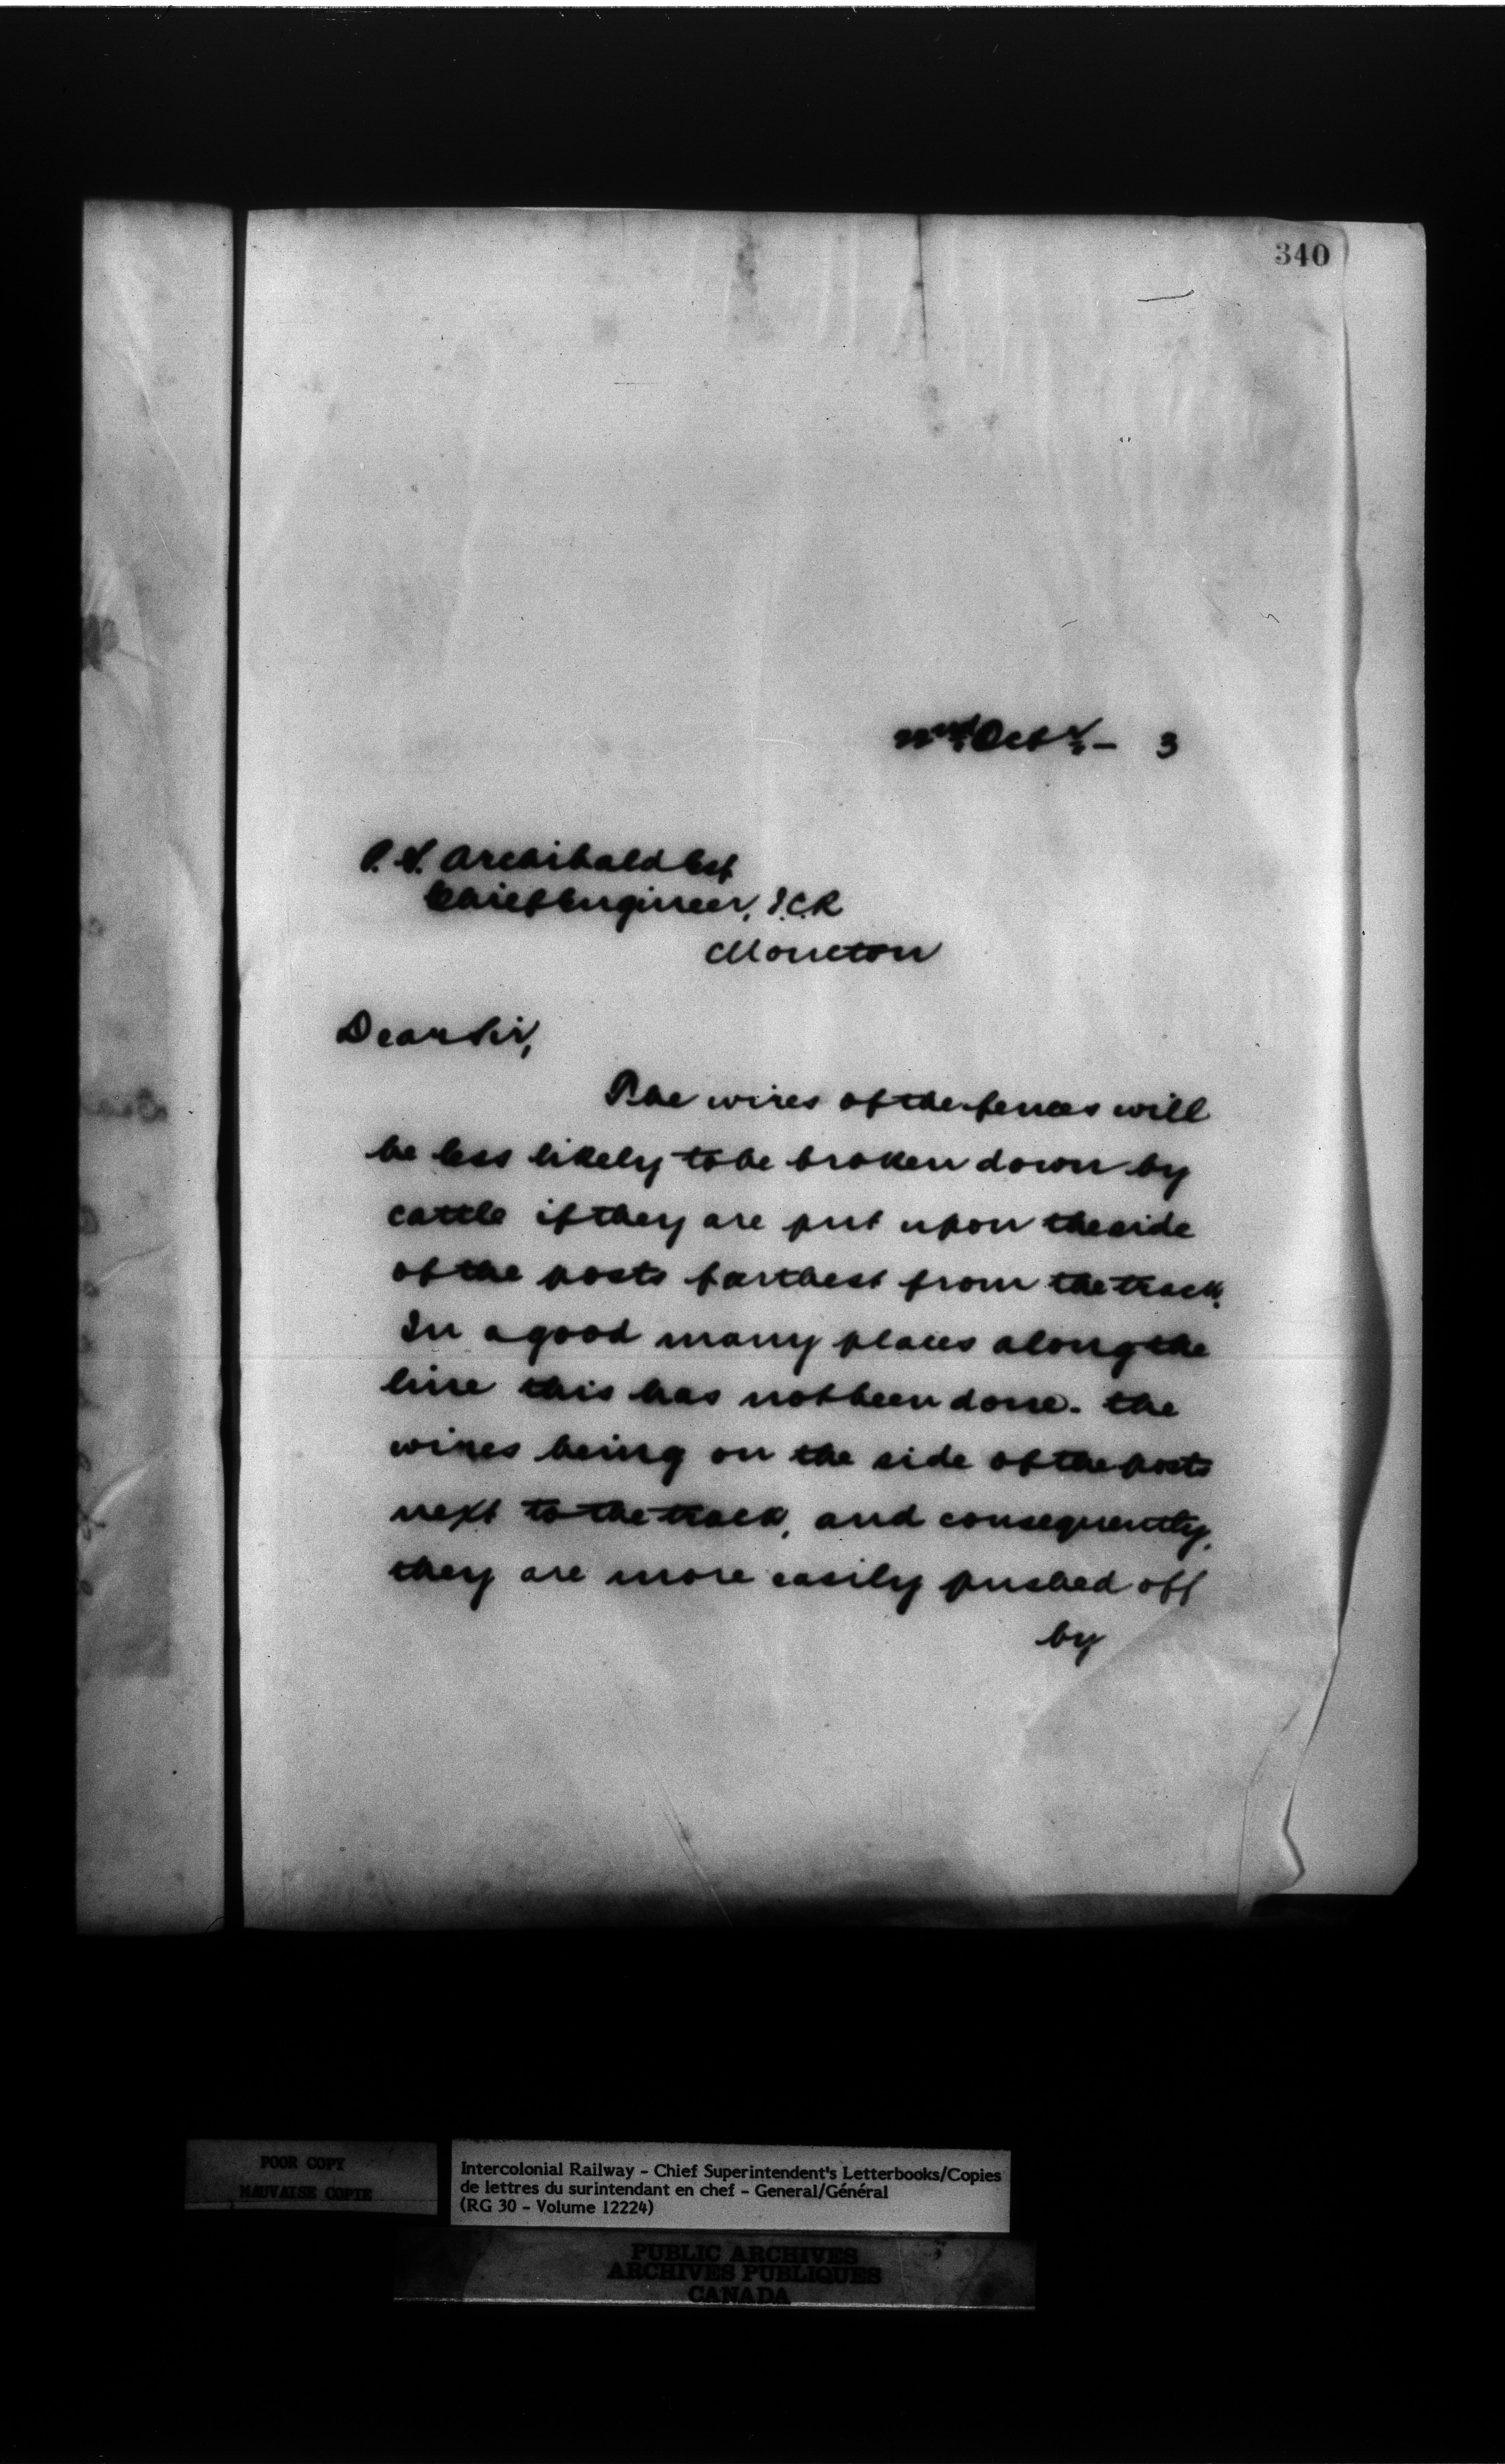 340
22nd Octr. - 3
P. S. Archibald Esq
Chief Engineer, I.C.R
Moncton
Dear Sir,
The wires of the fences will
be less likely to be broken down by
cattle if they are put upon the side
of the posts farthest from the track.
In a good many places along the
line this has not been done. the
wires being on the side of the posts
next to the track, and consequently,
they are more easily pushed off
by
POOR COPY
MAUVAISE COPIE
Intercolonial Railway - Chief Superintendent's Letterbooks/Copies
de lettres du surintendant en chef - General/Général
(RG 30 - Volume 12224)
PUBLIC ARCHIVES
ARCHIVES PUBLIQUES
CANADA